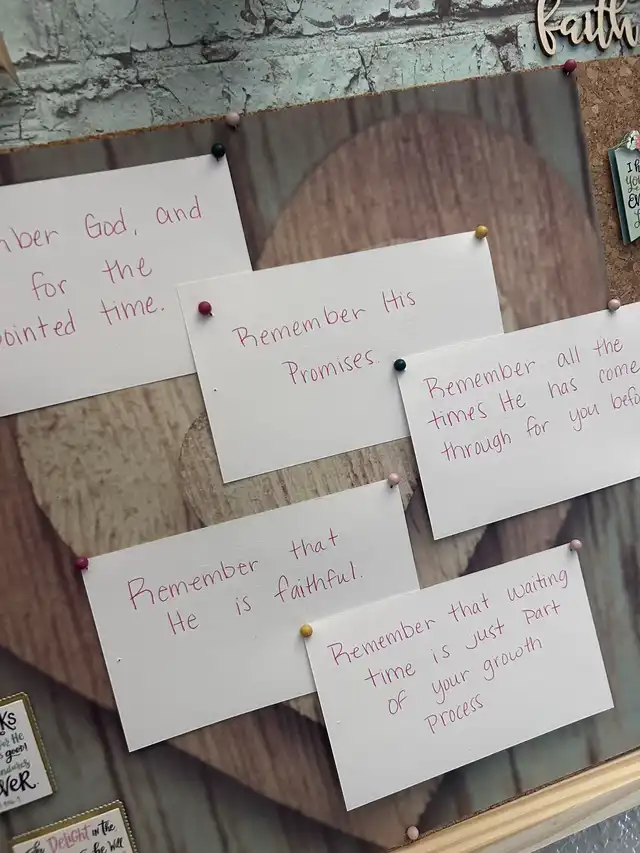 faith
God, and
for the
time.
Remember His
Promises.
Remember all the
times He has come
through for you
Remember that
He is faithful.
Remember that waiting
time is just part
of your growth
Process
I
DELIGHT in the
He
good!